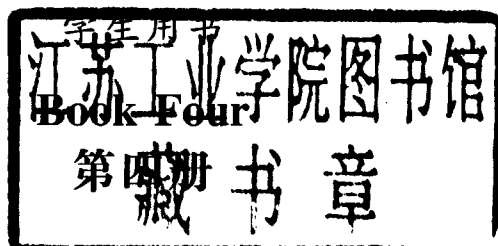 学生用书
江苏工业学院图书馆
Book Four
第四册
藏书章